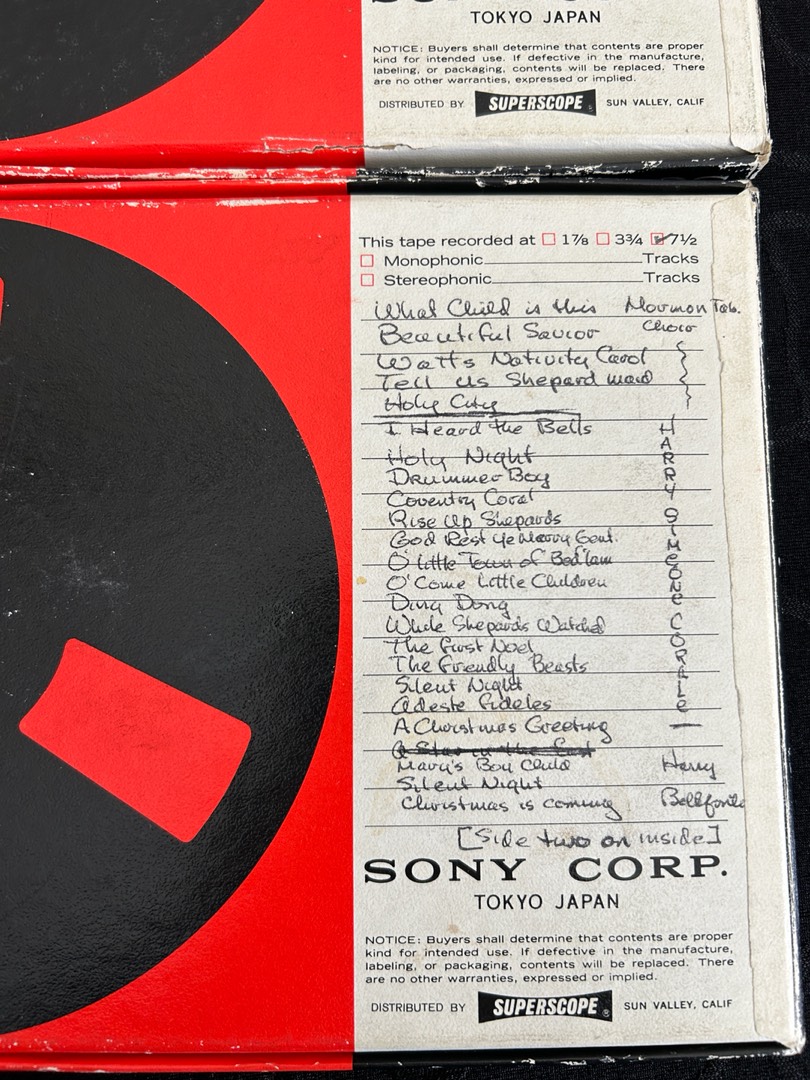 TOKYO JAPAN
NOTICE: Buyers shall determine that contents are proper
kind for intended use. If defective in the manufacture,
labeling, or packaging, contents will be replaced. There
are no other warranties, expressed or implied.
DISTRIBUTED BY SUPERSCOPE® SUN VALLEY, CALIF
This tape recorded at 1⅞ 3¾ 7½
Monophonic Tracks
Stereophonic Tracks
What Child is this Mormon Tab.
Beautiful Savior Choir
Watts Nativity Carol
Tell us Shepard maid
Holy City
I Heard the Bells
Holy Night
Drummer Boy
Coventry Carol
Rise Up Shepards
God Rest Ye Merry Gent.
O' Little Town of Bedlam
O' Come Little Children
Ding Dong
While Shepards Watched
The First Noel
The Friendly Beasts
Silent Night
Adeste Fideles
HARRY SIMEONE CORALE
A Christmas Greeting —
a Star in the East
Mary's Boy Child Harry
Silent Night
Christmas is coming Bellfonte
[Side two on inside]
SONY CORP.
TOKYO JAPAN
NOTICE: Buyers shall determine that contents are proper
kind for intended use. If defective in the manufacture,
labeling, or packaging, contents will be replaced. There
are no other warranties, expressed or implied.
DISTRIBUTED BY SUPERSCOPE® SUN VALLEY, CALIF